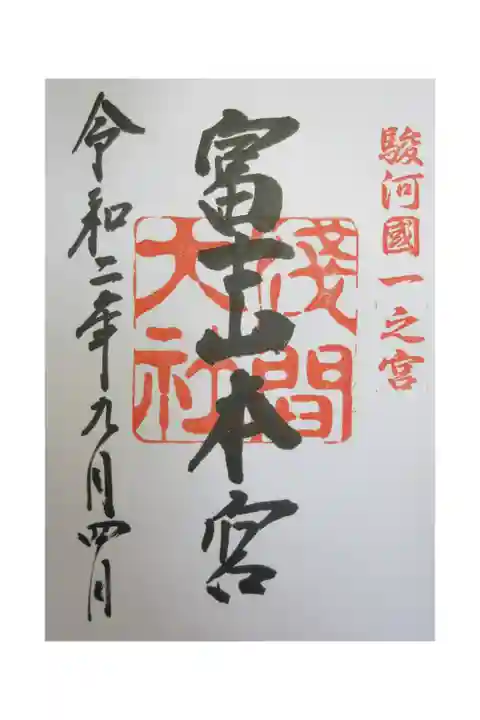 駿河國一之宮
富士山本宮
淺間大社
令和二年九月四日